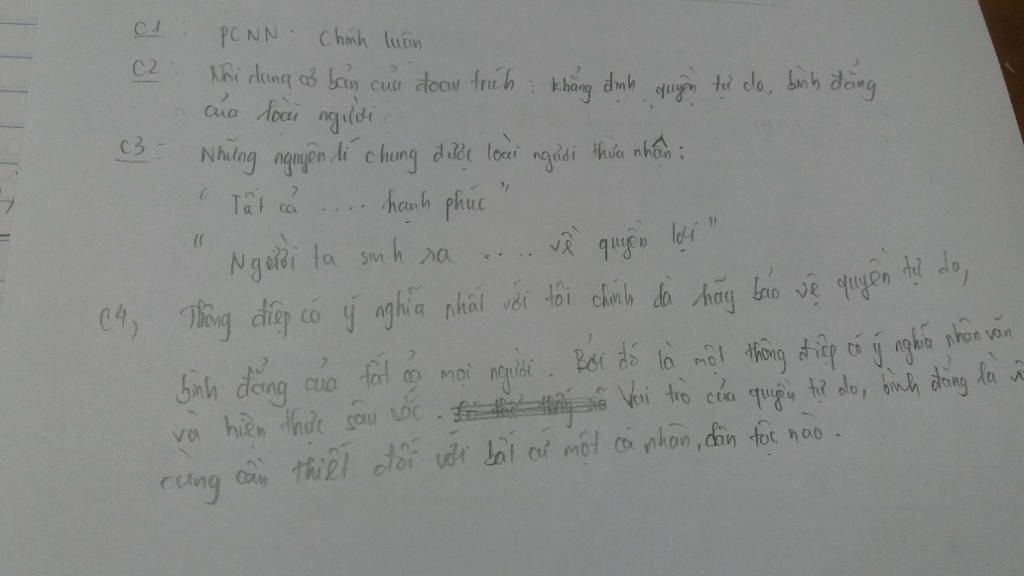 C1 : PCNN : Chính luận
C2 : Nội dung cơ bản của đoạn trích : khẳng định quyền tự do, bình đẳng
của loài người
C3 : Những nguyên lí chung được loài người thừa nhận :
" Tất cả .... hạnh phúc "
" Người ta sinh ra .... về quyền lợi "
C4, Thông điệp có ý nghĩa nhất với tôi chính là hãy bảo vệ quyền tự do,
bình đẳng của tất cả mọi người. Bởi đó là một thông điệp có ý nghĩa nhân văn
và hiện thực sâu sắc. Vai trò của quyền tự do, bình đẳng là vô
cùng cần thiết đối với bất cứ một cá nhân, dân tộc nào.